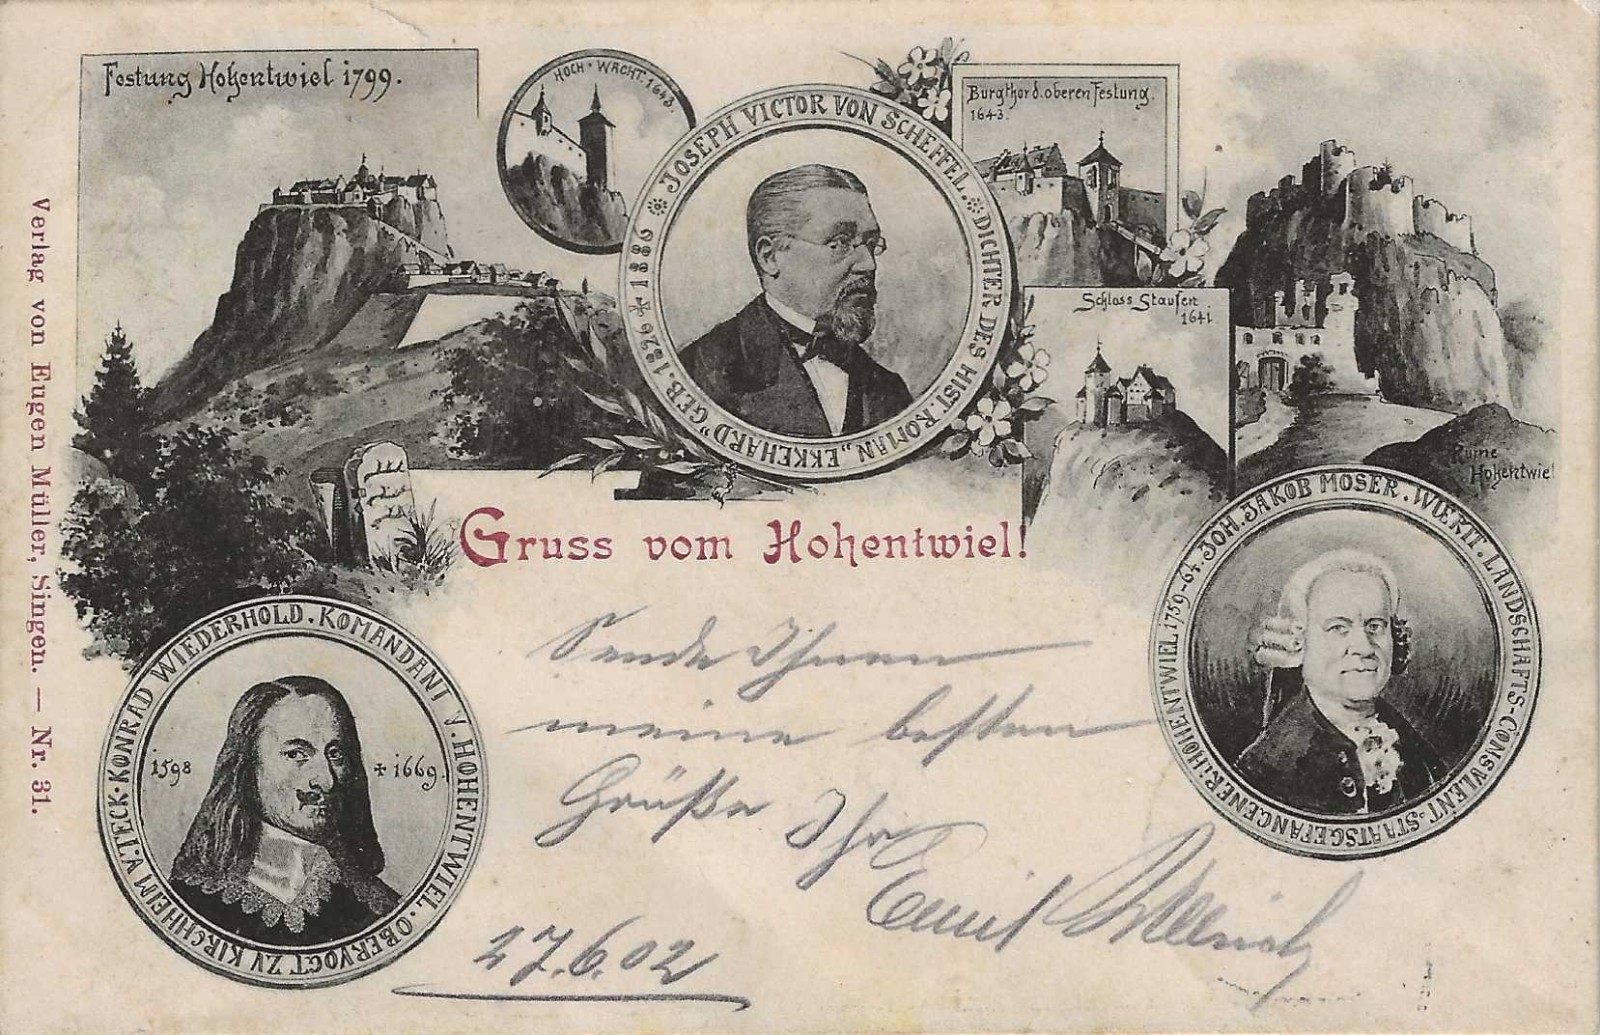 Festung Hohentwiel 1799.
HOCH-WACHT. 1643.
JOSEPH VICTOR VON SCHEFFEL. DICHTER DES HIST. ROMAN „EKKEHARD“ GEB. 1826 ✝ 1886
Burgthor d. oberen Festung.
1643.
Schloss Staufen
1641
Ruine
Hohentwiel
Gruss vom Hohentwiel!
KONRAD WIEDERHOLD. KOMANDANT V. HOHENTWIEL. OBERVOGT ZV KIRCHHEIM V. TECK.
1598 ✝ 1669.
JOH. JAKOB MOSER. WUERTT. LANDSCHAFTS-CONSVLENT. STAATSGEFANGENER: HOHENTWIEL 1759-64.
Sende Ihnen
meine besten
Grüße Ihr
Emil
27.6.02
Verlag von Eugen Müller, Singen. — Nr. 31.